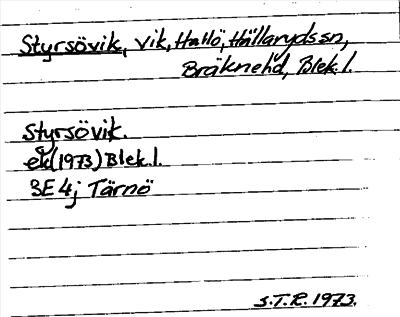 Styrsövik, vik, Hallö, Hällarydssn,
Bräknehd, Blek.l.
Styrsövik.
ek (1973) Blek.l.
3E 4j Tärnö
S.T.R. 1973.